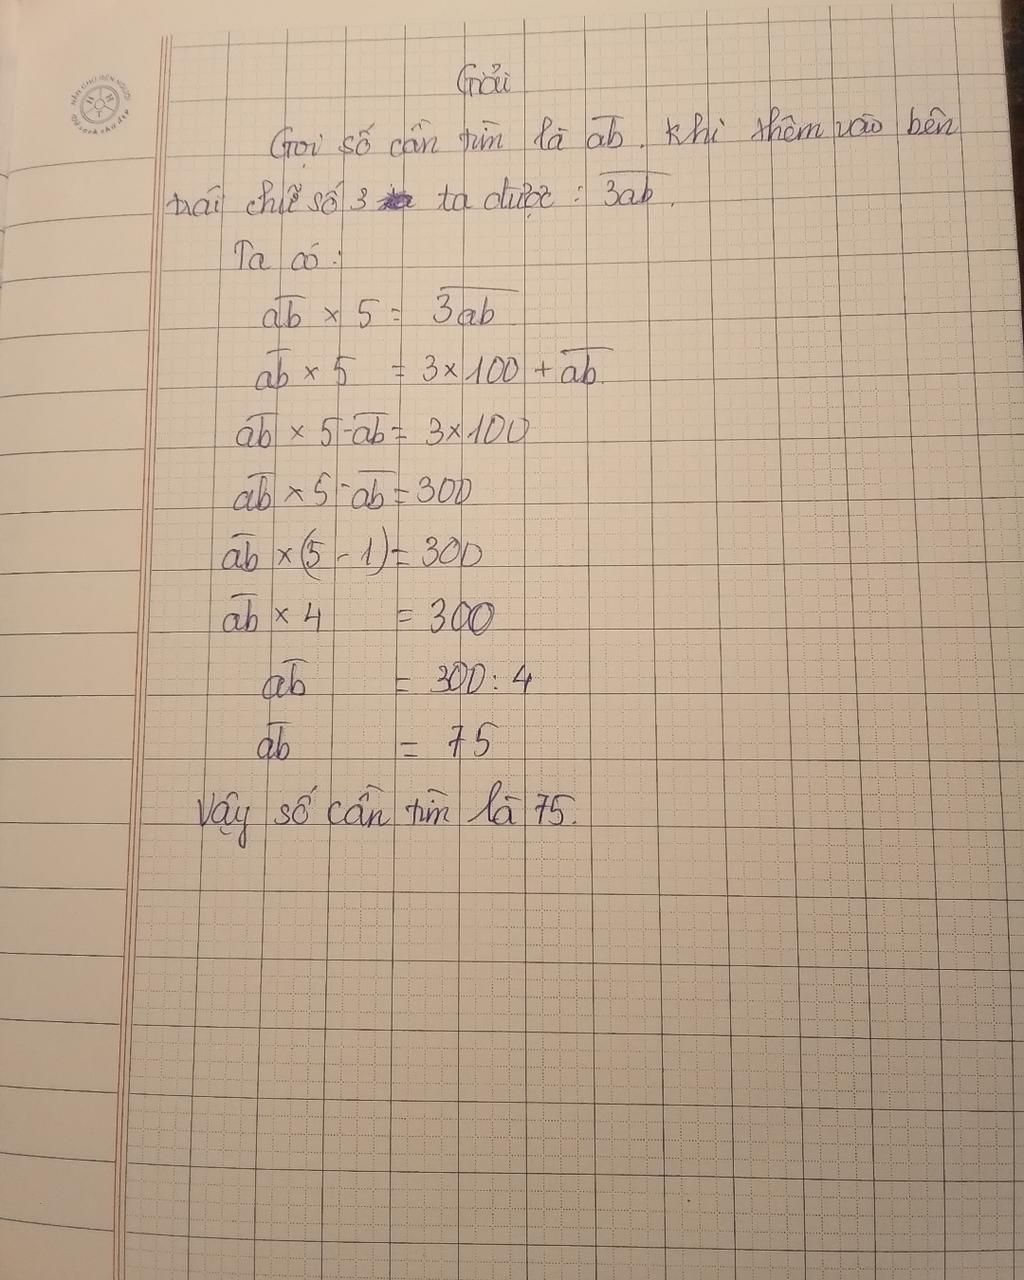 Giải
Gọi số cần tìm là a̅b̅. Khi thêm vào bên
trái chữ số 3 ta được : 3̅a̅b̅.
Ta có :
a̅b̅ × 5 = 3̅a̅b̅
a̅b̅ × 5 = 3 × 100 + a̅b̅.
a̅b̅ × 5 - a̅b̅ = 3 × 100
a̅b̅ × 5 - a̅b̅ = 300
a̅b̅ × (5 - 1) = 300
a̅b̅ × 4 = 300
a̅b̅ = 300 : 4
a̅b̅ = 75
Vậy số cần tìm là 75.